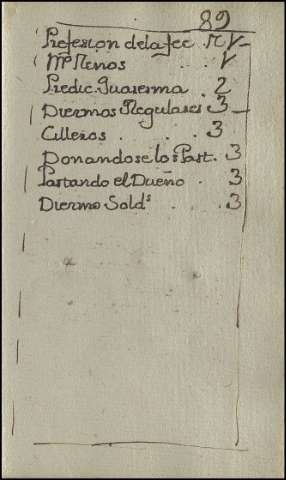 89
Profesion de la fee. N V
Mſ Menos . . V
Predic. Quaresma . 2
Diezmos Regulares 3
Cilleros . . . 3
Donandose los Part. 3
Pastando el Dueño . 3
Diezmo Solds . . . 3